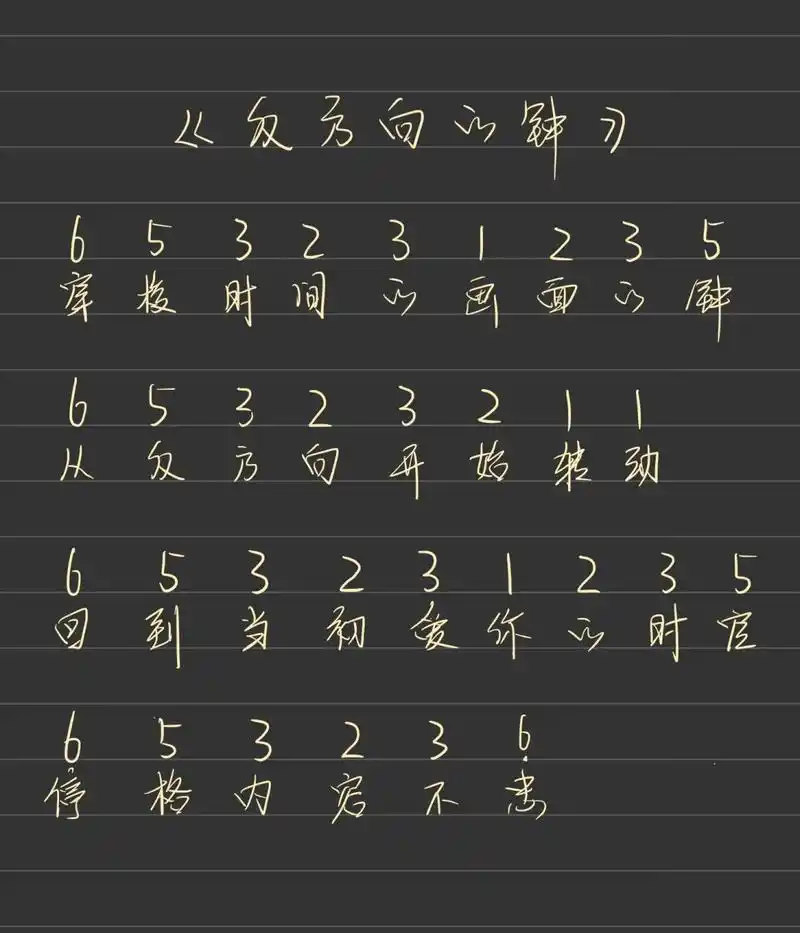 《反方向的钟》
6 5 3 2 3 1 2 3 5
穿梭时间的画面的钟
6 5 3 2 3 2 1 1
从反方向开始转动
6 5 3 2 3 1 2 3 5
回到当初爱你的时空
6 5 3 2 3 6̣
停格内容不忠